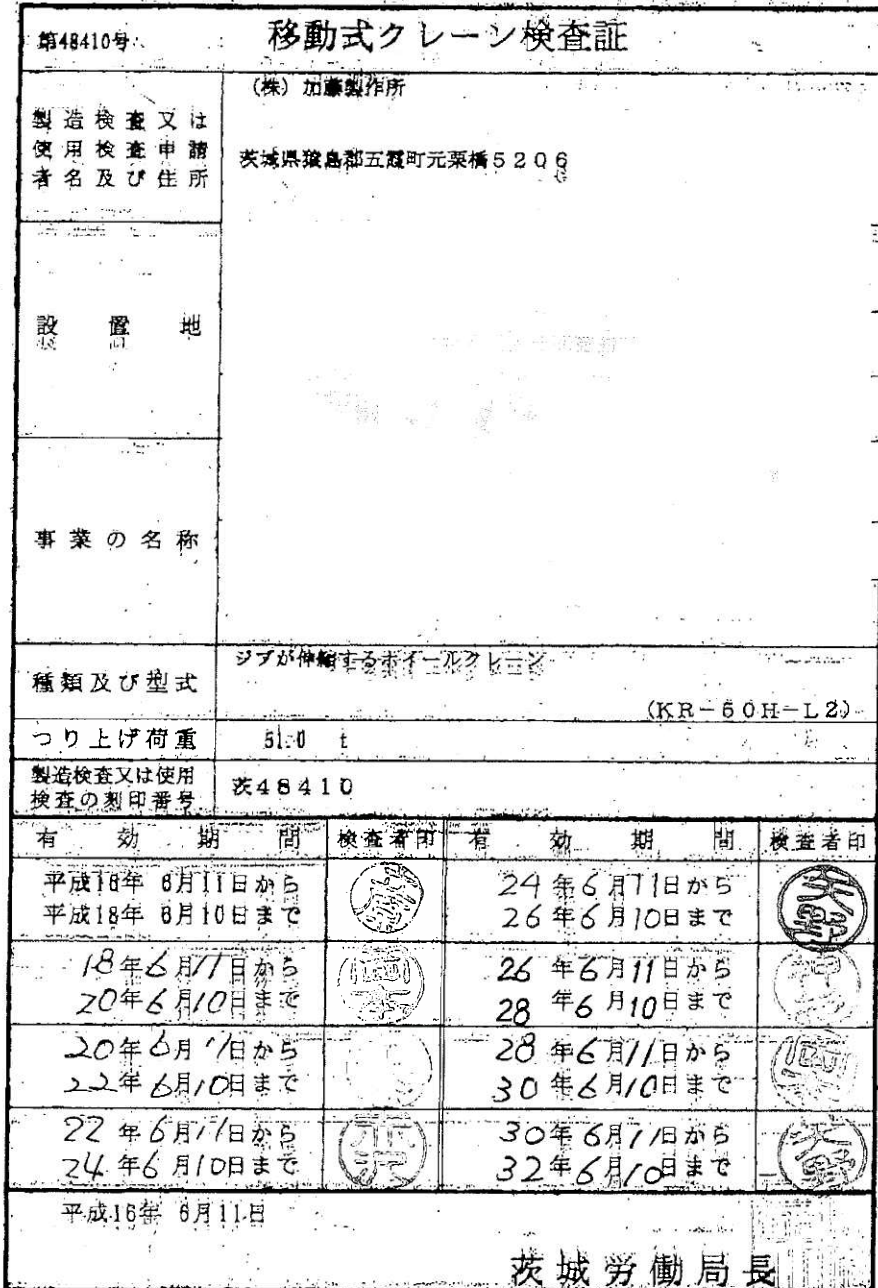 第48410号
移動式クレーン検査証
製造検査又は
使用検査申請
者名及び住所
(株) 加藤製作所
茨城県猿島郡五霞町元栗橋5206
設置地
事業の名称
種類及び型式
ジブが伸縮するホイールクレーン
(KR-50H-L2)
つり上げ荷重
51.0 t
製造検査又は使用
検査の刻印番号
茨48410
有効期間 検査者印 有効期間 検査者印
平成16年 6月11日から
平成18年 6月10日まで
18年6月11日から
20年6月10日まで
20年6月11日から
22年6月10日まで
22年6月11日から
24年6月10日まで
24年6月11日から
26年6月10日まで
矢野
26年6月11日から
28年6月10日まで
28年6月11日から
30年6月10日まで
30年6月11日から
32年6月10日まで
矢野
平成16年 6月11日
茨城労働局長